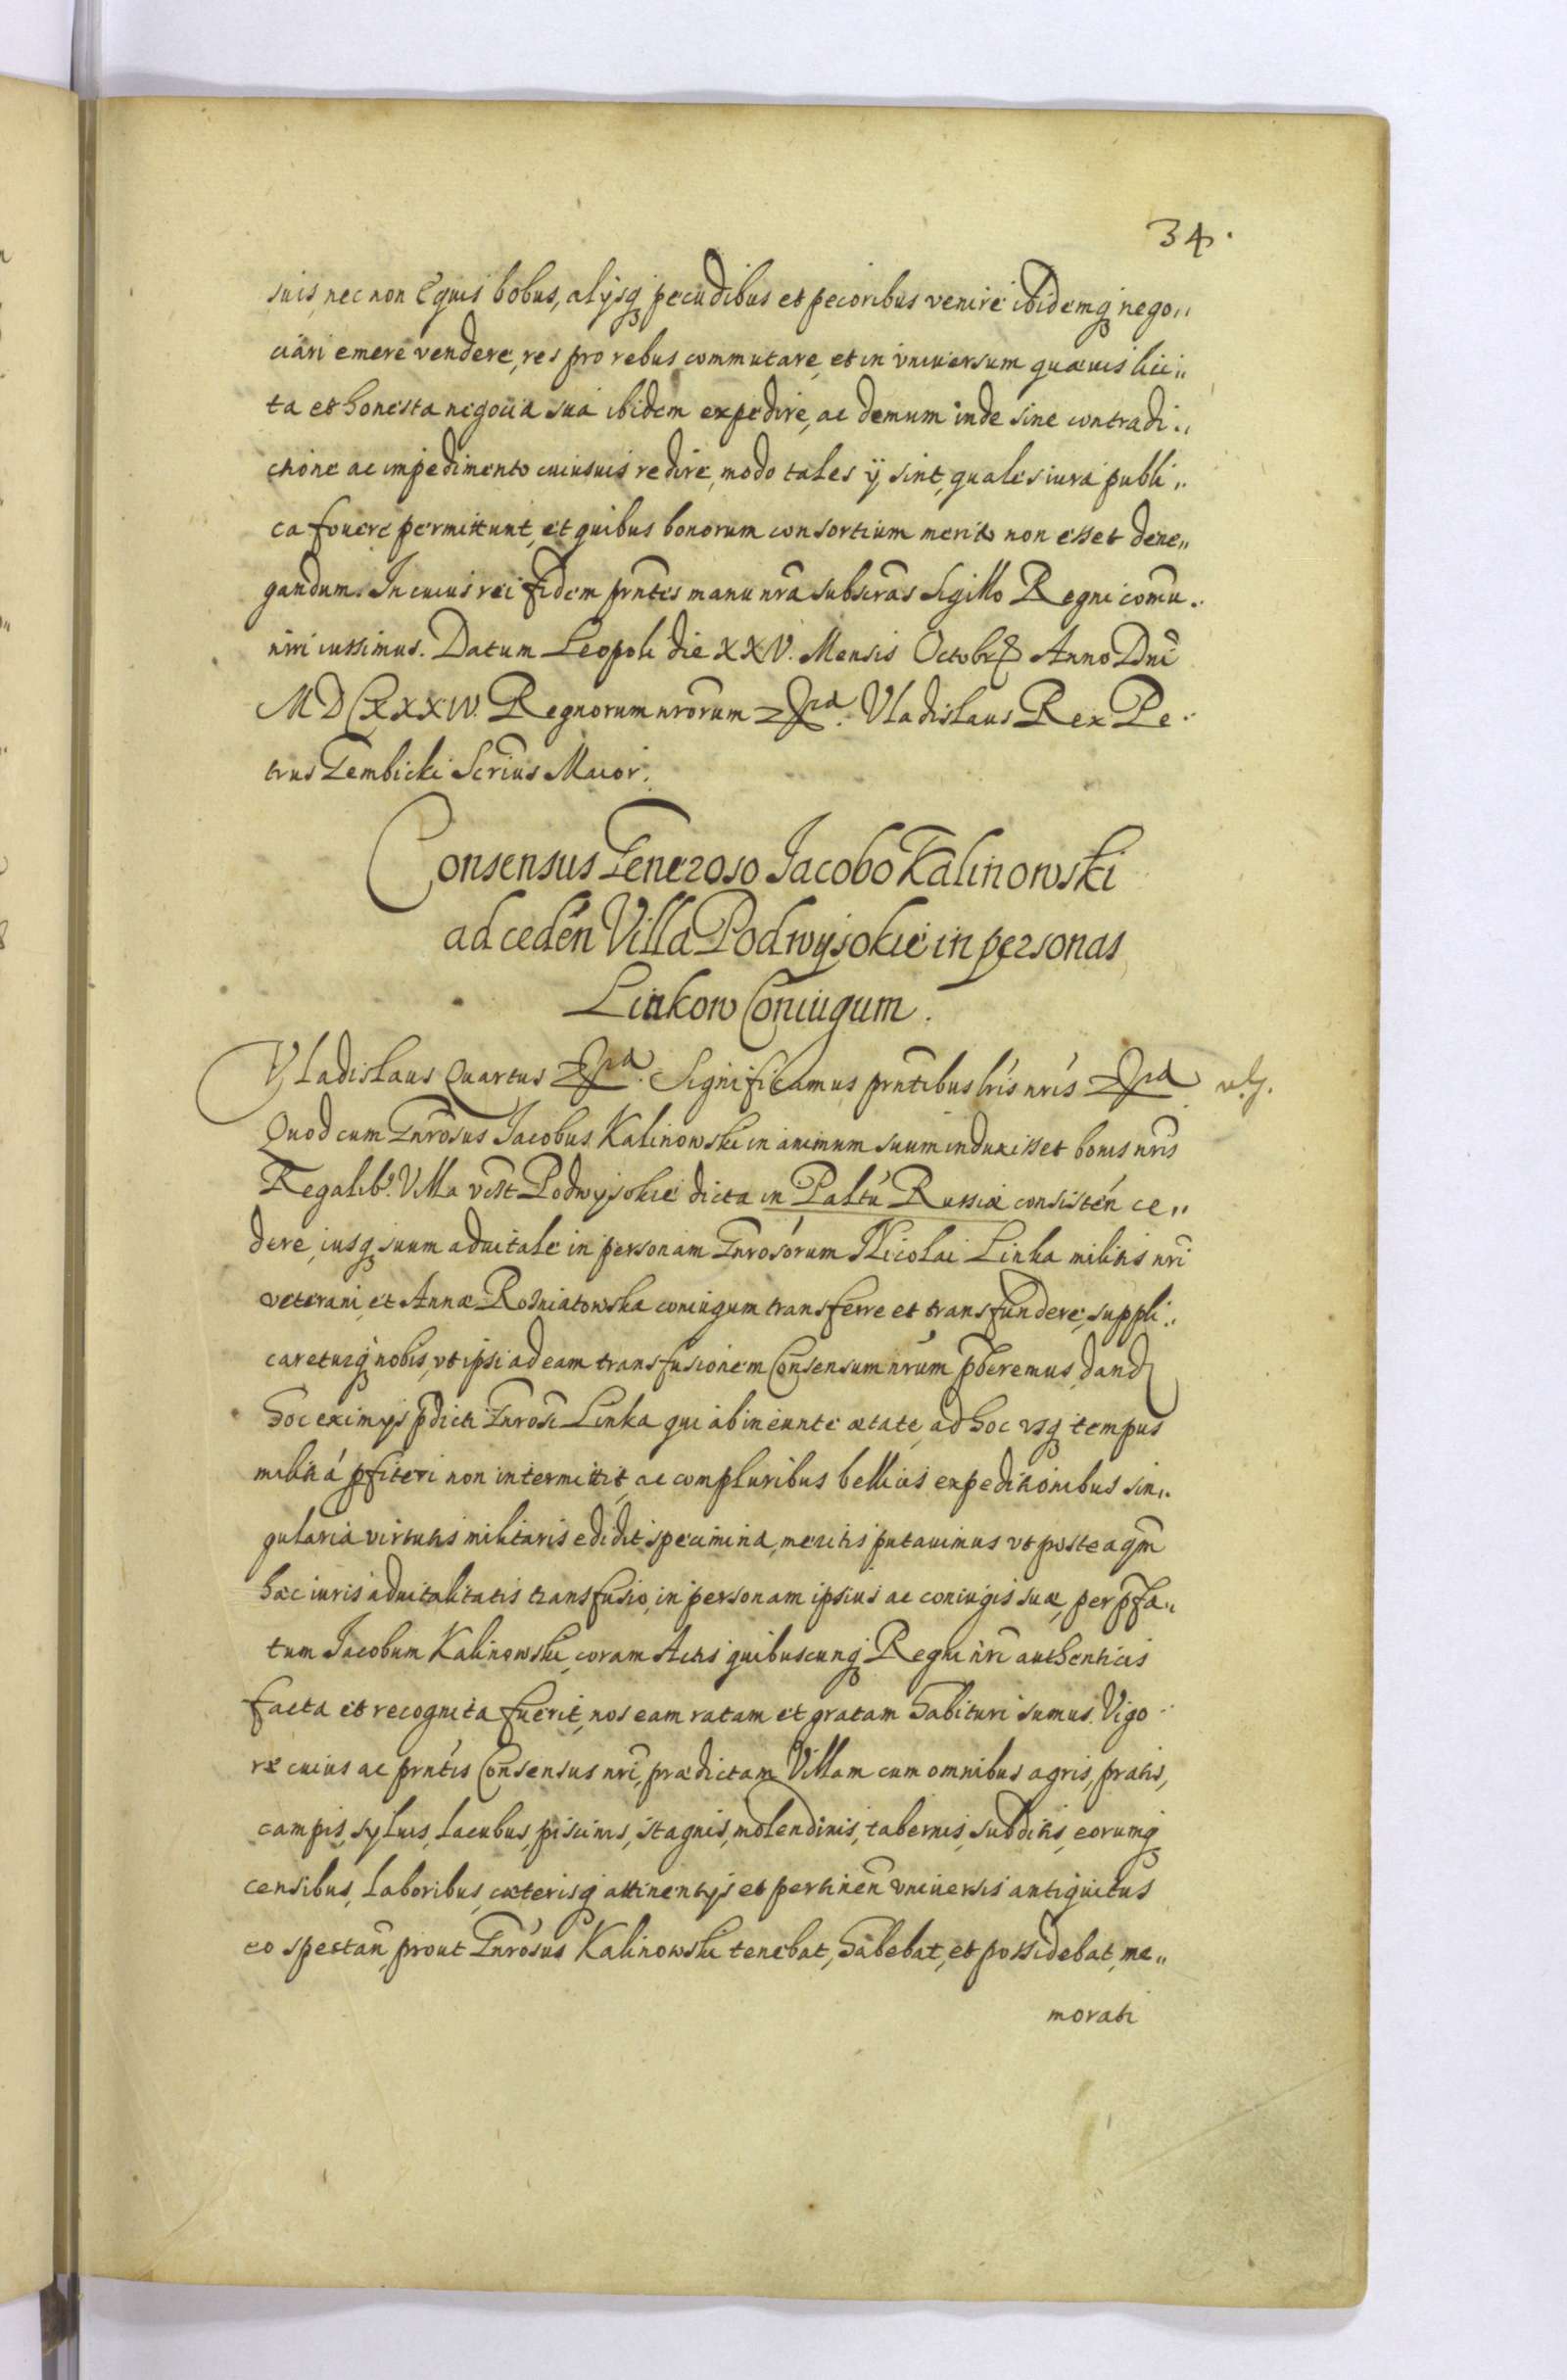 34.
suis, nec non Equis bobus, alysq pecudibus et pecoribus venire ibidemq nego„
ciari emere vendere, res pro rebus commutare, et in vniuersum quæuis lici„
ta et honesta negocia sua ibidem expedire, ac demum inde sine contradi„
ctione ac impedimento cuiusuis redire, modo tales ÿ sint, quales iura publi„
ca fouere permittunt, et quibus bonorum consortium merito non esset dene„
gandum. In cuius rei fidem prntes manu nra subscras Sigillo Regni comu„
niri iussimus. Datum Leopoli die XXV. Mensis Octobr Anno Dni
MDCXXXIV. Regnorum nrorum Vladislaus Rex Pe„
trus Gembicki Scrius Maior.
Consensus Generoso Jacobo Kalinowski
ad ceden Villa Podwysokie in personas
Linkow Coniugum.
Vladislaus Quartus Significamus prntibus lris nris
Quod cum Gnrosus Jacobus Kalinowski in animum suum induxisset bonis nris
Regalib9 Villa vist Podwysokie dicta in Paltu Russiæ consisten ce„
dere, iusq suum aduitale in personam Gnrosorum Nicolai Linka militis nri
veterani, et Annæ Rosniatowska coniugum transferre et transfundere, suppli„
careturq nobis, vt ipsi ad eam transfusionem Consensum nrum pberemus, dand
hoc eximys pdicti Gnrosi Linka qui ab ineunte ætate, ad hoc vsq tempus
militiá pfiteri non intermittit, ac compluribus bellicis expeditionibus sin„
gularia virtutis militaris edidit specimina, meritis putauimus vt posteaqm
hæc iuris aduitalitatis transfusio, in personam ipsius ac coniugis suæ, per pfa„
tum Jacobum Kalinowski, coram Actis quibuscunq Regni nri authenticis
facta et recognita fuerit, nos eam ratam et gratam habituri sumus. Vigo
re cuius ac prntis Consensus nri, prædictam Villam cum omnibus agris, pratis,
campis, syluis, lacubus, piscinis, stagnis, molendinis, tabernis, subditis, eorumq
censibus, laboribus, cæterisq attinentys et pertinen vniuersis antiquitus
eo spectan, prout Gnrosus Kalinowski tenebat, habebat, et possidebat, me„
morati